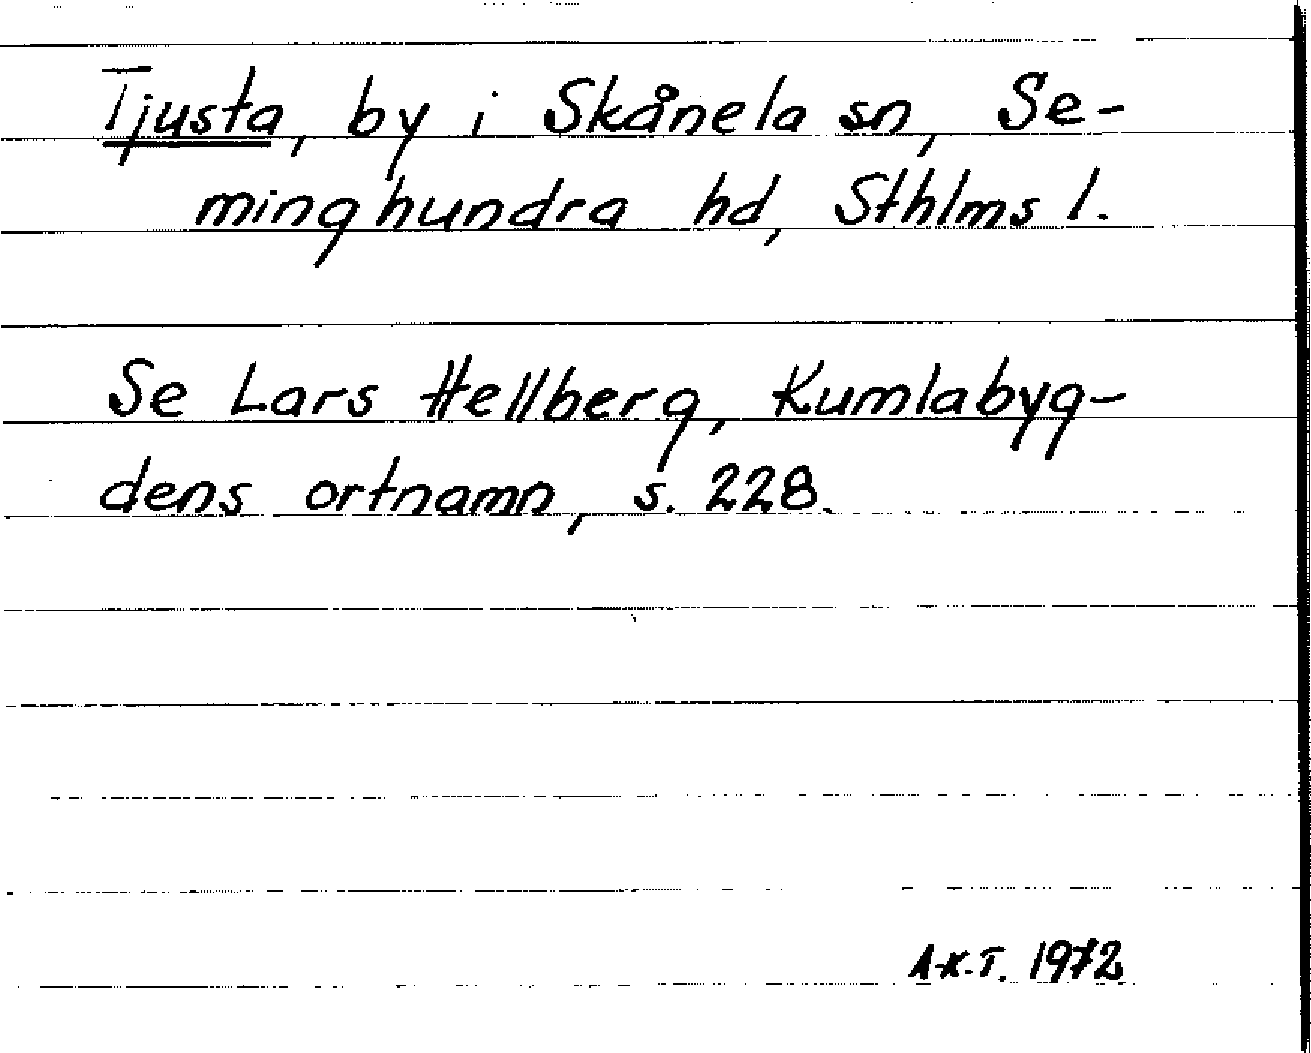 Tjusta, by i Skånela sn, Se-
minghundra hd, Sthlms l.
Se Lars Hellberg, Kumlabyg-
dens ortnamn, s. 228.
A-K.T. 1972